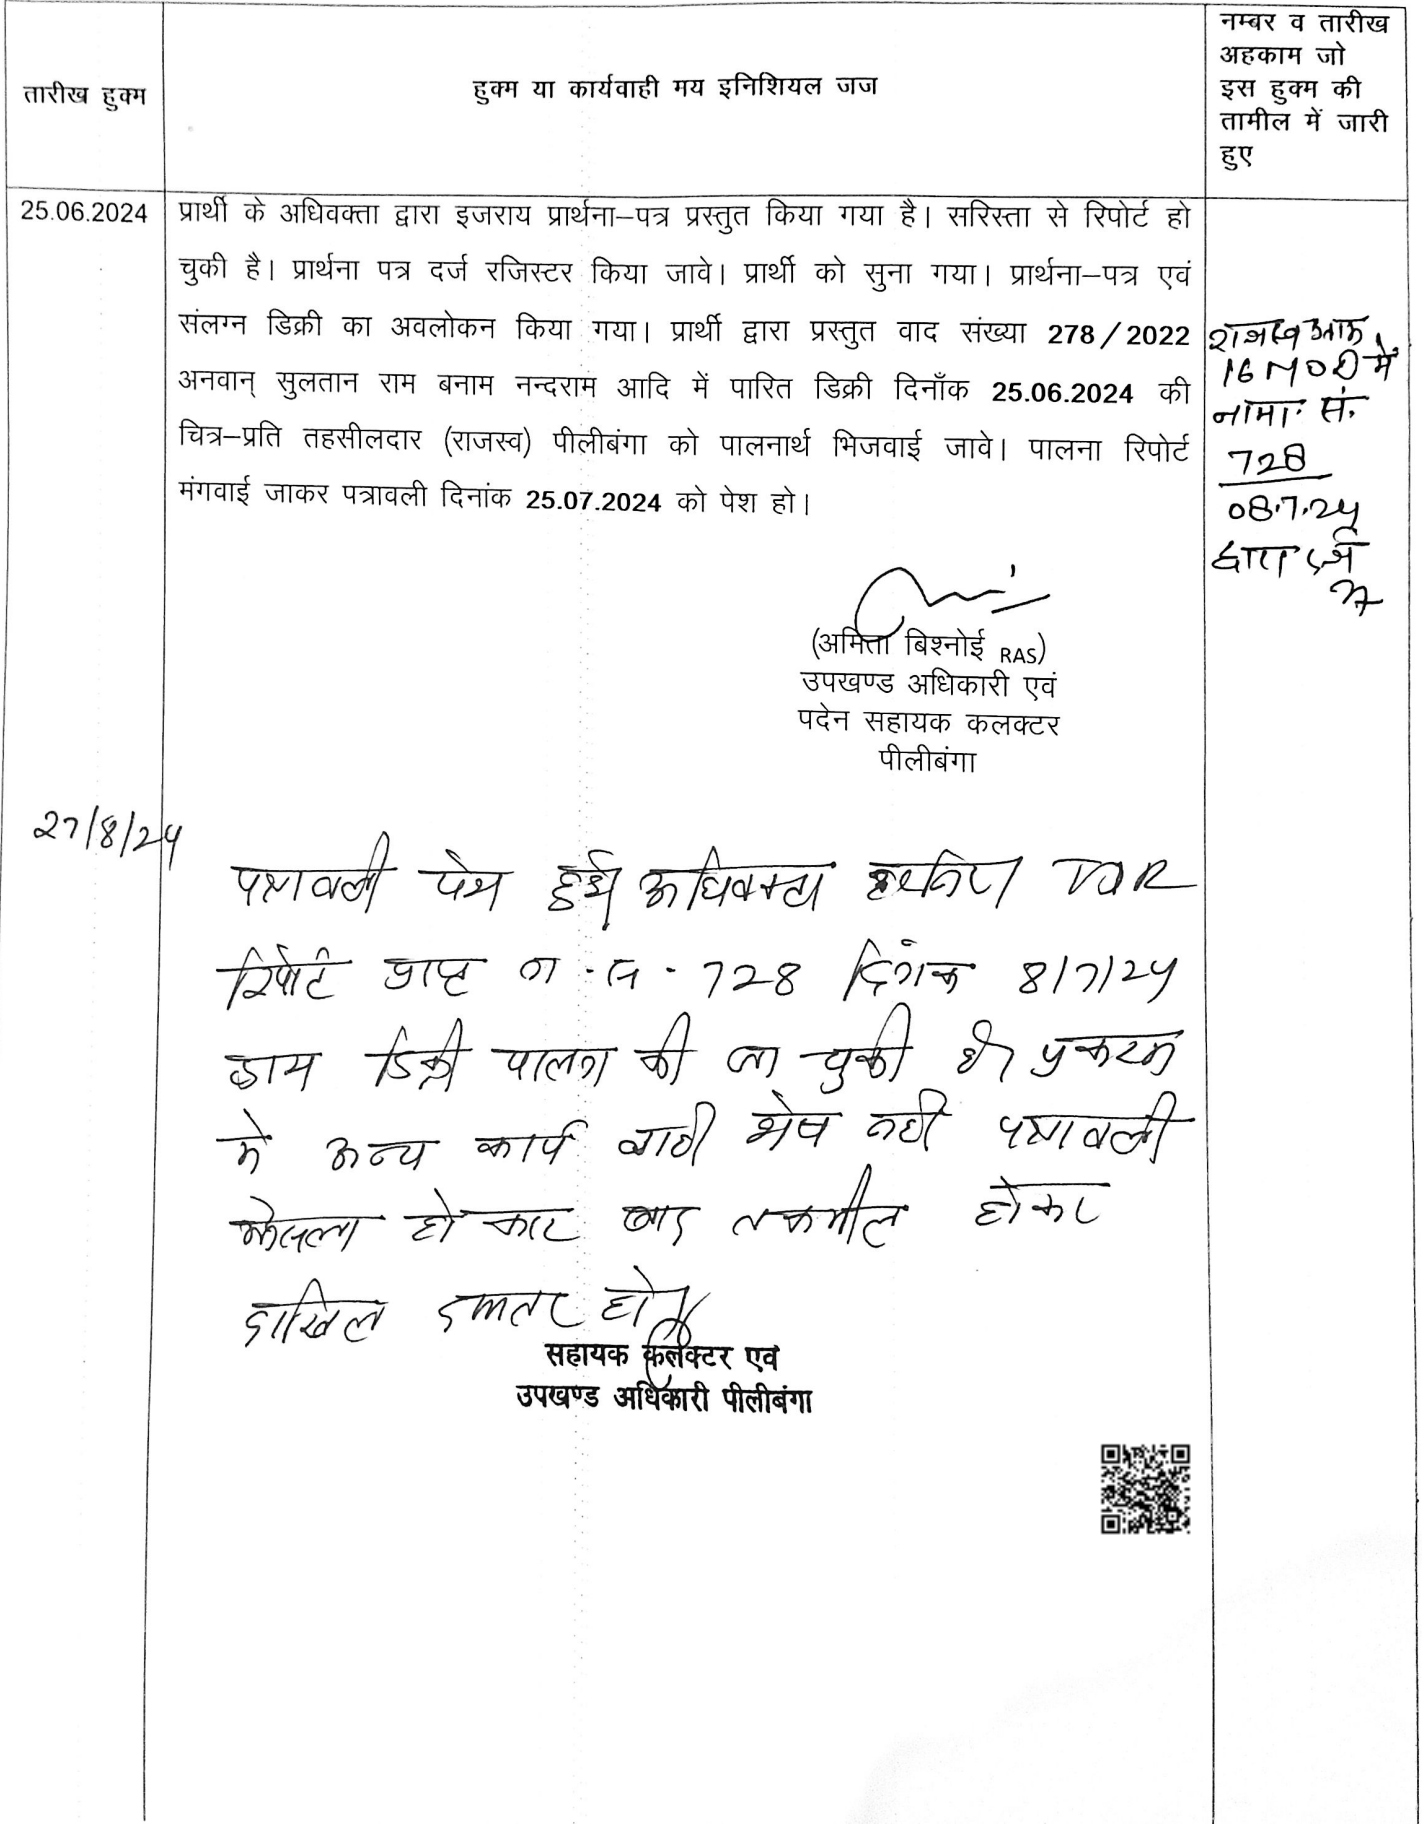 तारीख हुक्म
हुक्म या कार्यवाही मय इनिशियल जज
नम्बर व तारीख
अहकाम जो
इस हुक्म की
तामील में जारी
हुए
25.06.2024
प्रार्थी के अधिवक्ता द्वारा इजराय प्रार्थना–पत्र प्रस्तुत किया गया है। सरिस्ता से रिपोर्ट हो
चुकी है। प्रार्थना पत्र दर्ज रजिस्टर किया जावे। प्रार्थी को सुना गया। प्रार्थना–पत्र एवं
संलग्न डिक्री का अवलोकन किया गया। प्रार्थी द्वारा प्रस्तुत वाद संख्या 278/2022
अनवान् सुलतान राम बनाम नन्दराम आदि में पारित डिक्री दिनाँक 25.06.2024 की
चित्र–प्रति तहसीलदार (राजस्व) पीलीबंगा को पालनार्थ भिजवाई जावे। पालना रिपोर्ट
मंगवाई जाकर पत्रावली दिनांक 25.07.2024 को पेश हो।
राजस्व
16 में
नामा. सं.
728
08.7.24
द्वारा दर्ज
(अमिता बिश्नोई RAS)
उपखण्ड अधिकारी एवं
पदेन सहायक कलक्टर
पीलीबंगा
27/8/24
पत्रावली पेश हुई अधिवक्ता TDR
रिपोर्ट प्राप्त ना.स. 728 दिनांक 8/7/24
द्वारा डिक्री पालना की जा चुकी है। प्रकरण
मे अन्य कार्यवाही शेष नही पत्रावली
फैसला होकर बाद तकमील होकर
दाखिल दफ्तर होवे
सहायक कलेक्टर एवं
उपखण्ड अधिकारी पीलीबंगा